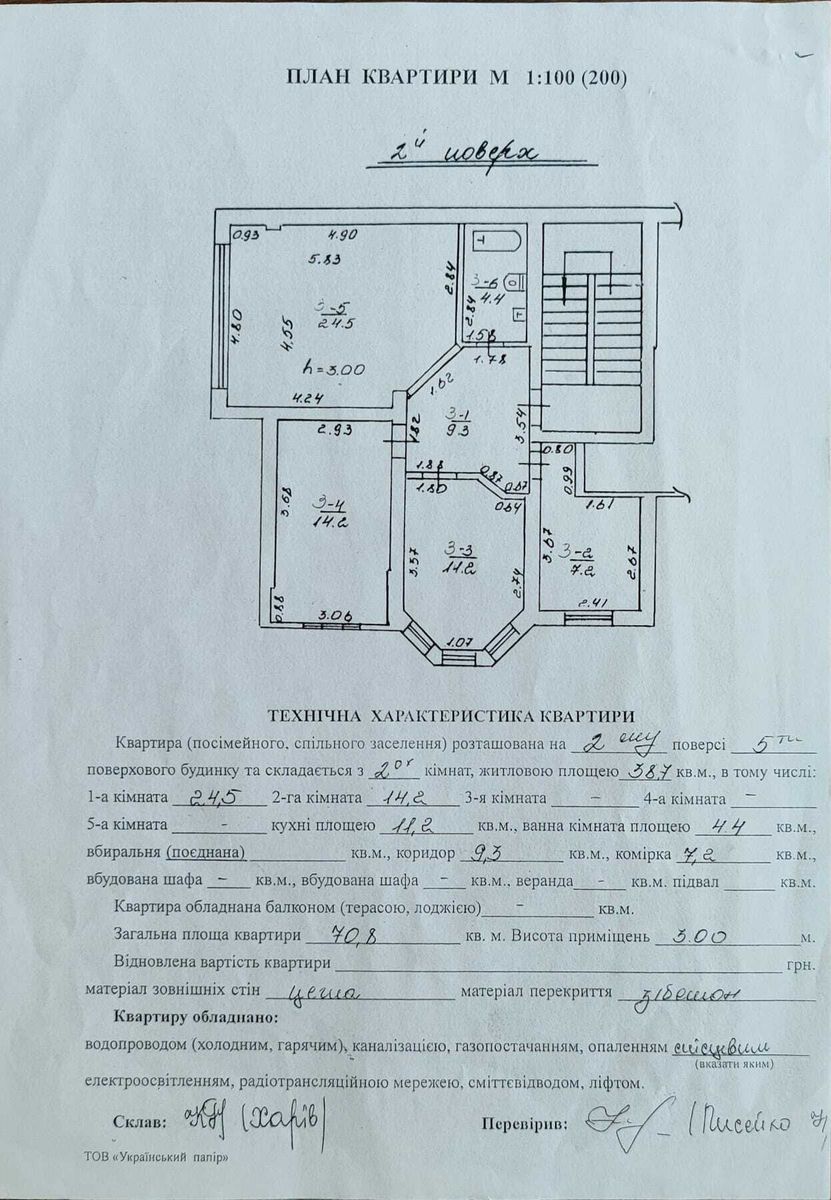 ПЛАН КВАРТИРИ М 1:100 (200)
2й поверх
0.93 4.90
5.83
3-5
24.5
4.80
4.55
2.84
h=3.00
4.24
3-6
4.4
2.84
1.58
1.78
1.62
3-1
9.3
1.82
3.54
2.93
3-4
14.2
3.68
0.88
3.06
1.88
1.80
0.87
0.67
0.64
3-3
11.2
3.57
2.74
1.07
0.80
0.99
1.61
3-2
7.2
3.67
2.67
2.41
ТЕХНІЧНА ХАРАКТЕРИСТИКА КВАРТИРИ
Квартира (посімейного, спільного заселення) розташована на 2 ому поверсі 5ти
поверхового будинку та складається з 2ох кімнат, житловою площею 38.7 кв.м., в тому числі:
1-а кімната 24,5 2-га кімната 14,2 3-я кімната - 4-а кімната -
5-а кімната - кухні площею 11,2 кв.м., ванна кімната площею 4.4 кв.м.,
вбиральня (поєднана) кв.м., коридор 9,3 кв.м., комірка 7,2 кв.м.,
вбудована шафа - кв.м., вбудована шафа - кв.м., веранда - кв.м. підвал кв.м.
Квартира обладнана балконом (терасою, лоджією) - кв.м.
Загальна площа квартири 70,8 кв. м. Висота приміщень 3.00 м.
Відновлена вартість квартири грн.
матеріал зовнішніх стін цегла матеріал перекриття з/бетон
Квартиру обладнано:
водопроводом (холодним, гарячим), каналізацією, газопостачанням, опаленням місцевим
(вказати яким)
електроосвітленням, радіотрансляційною мережею, сміттєвідводом, ліфтом.
Склав: (Харів) Перевірив: (Писейко
ТОВ «Український папір»